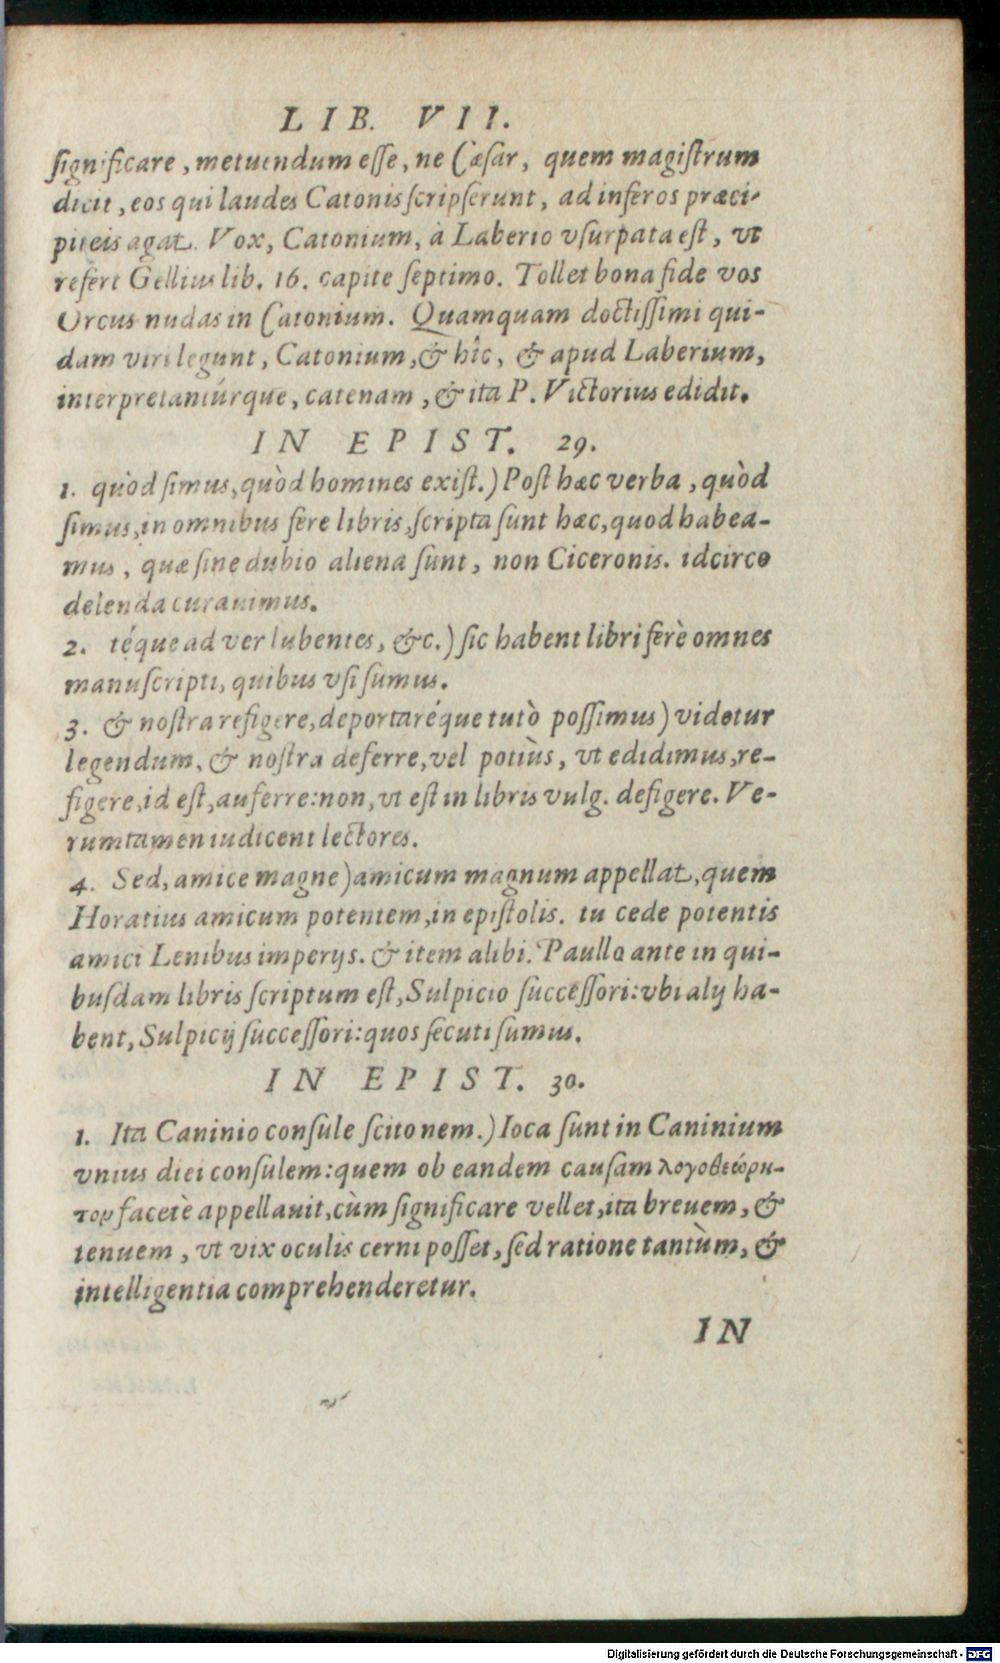 LIB. VII.
significare, metuendum esse, ne Cæsar, quem magistrum
dicit, eos qui laudes Catonis scripserunt, ad inferos præci-
piteis agat. Vox, Catonium, à Laberio vsurpata est, vt
refert Gellius lib. 16. capite septimo. Tollet bona fide vos
Orcus nudas in Catonium. Quamquam doctissimi qui-
dam viri legunt, Catonium, & hîc, & apud Laberium,
interpretantúrque, catenam, & ita P. Victorius edidit.
IN EPIST. 29.
1. quòd simus, quòd homines exist.) Post hæc verba, quòd
simus, in omnibus fere libris, scripta sunt hæc, quod habea-
mus, quæ sine dubio aliena sunt, non Ciceronis. idcirco
delenda curauimus.
2. téque ad ver lubentes, &c.) sic habent libri ferè omnes
manuscripti, quibus vsi sumus.
3. & nostra refigere, deportaréque tutò possimus) videtur
legendum, & nostra deferre, vel potiùs, vt edidimus, re-
figere, id est, auferre: non, vt est in libris vulg. defigere. Ve-
rumtamen iudicent lectores.
4. Sed, amice magne) amicum magnum appellat, quem
Horatius amicum potentem, in epistolis. tu cede potentis
amici Lenibus imperijs. & item alibi. Paullo ante in qui-
busdam libris scriptum est, Sulpicio successori: vbi alij ha-
bent, Sulpicij successori: quos secuti sumus.
IN EPIST. 30.
1. Ita Caninio consule scito nem.) Ioca sunt in Caninium
vnius diei consulem: quem ob eandem causam λογοθεώρη-
τον facetè appellauit, cùm significare vellet, ita breuem, &
tenuem, vt vix oculis cerni posset, sed ratione tantùm, &
intelligentia comprehenderetur.
IN
Digitalisierung gefördert durch die Deutsche Forschungsgemeinschaft - DFG